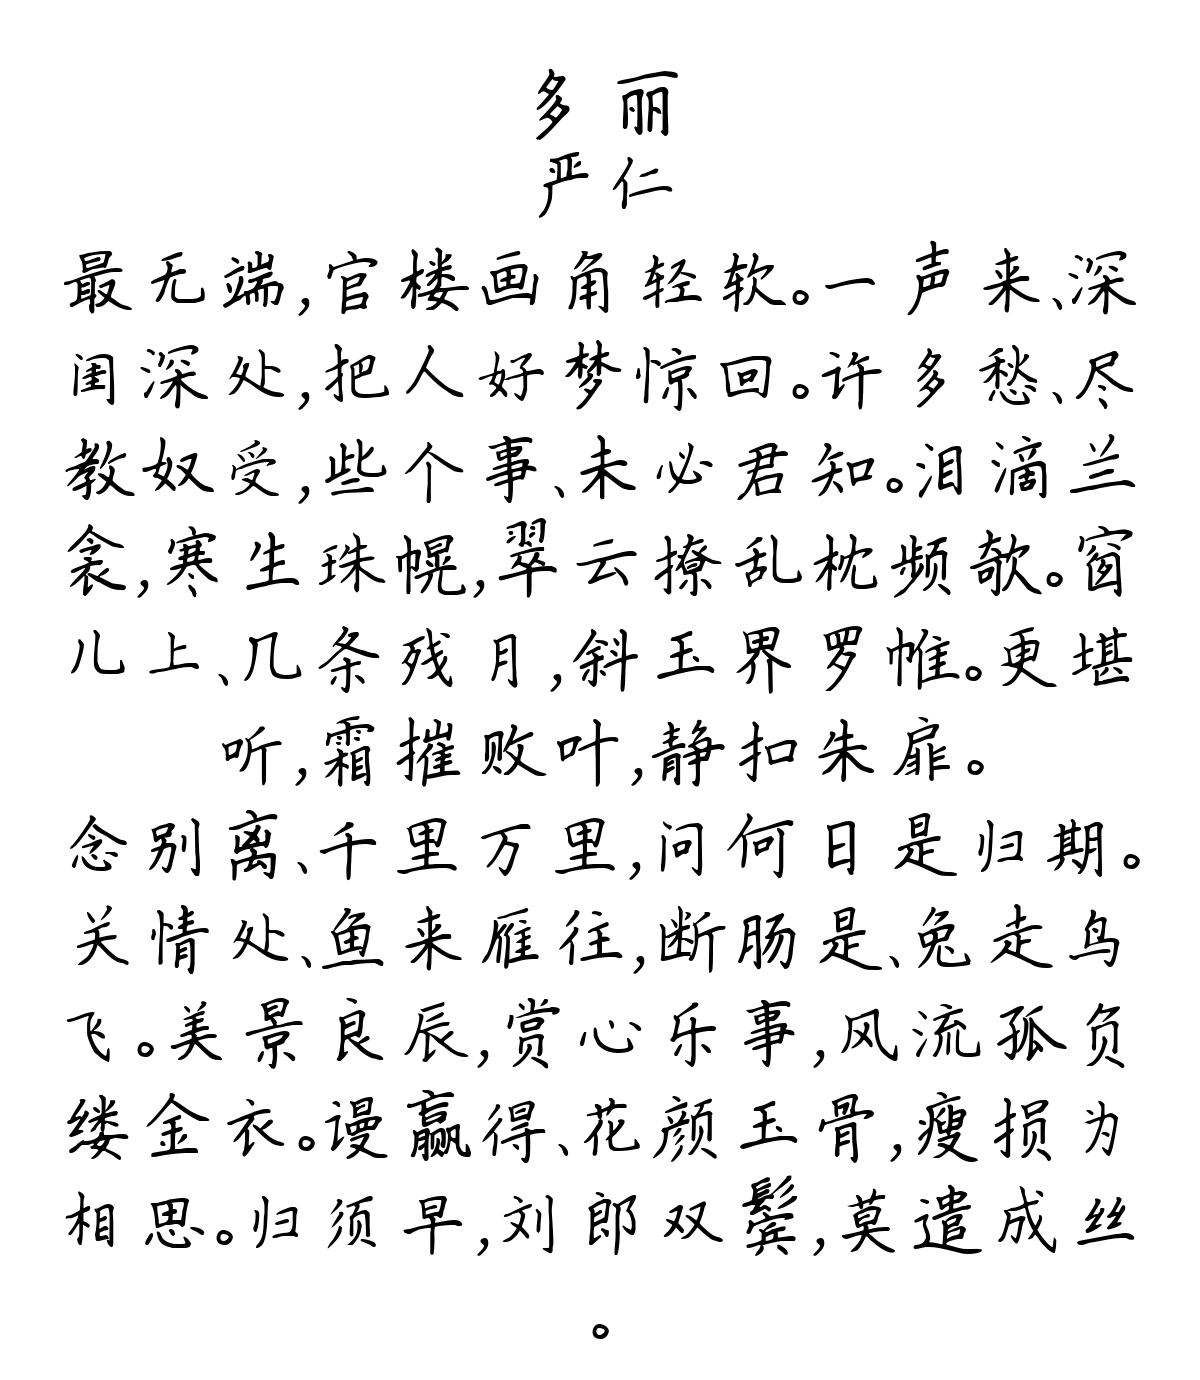 多丽
严仁
最无端,官楼画角轻软。一声来、深
闺深处,把人好梦惊回。许多愁、尽
教奴受,些个事、未必君知。泪滴兰
衾,寒生珠幌,翠云撩乱枕频欹。窗
儿上、几条残月,斜玉界罗帷。更堪
听,霜摧败叶,静扣朱扉。
念别离、千里万里,问何日是归期。
关情处、鱼来雁往,断肠是、兔走鸟
飞。美景良辰,赏心乐事,风流孤负
缕金衣。谩赢得、花颜玉骨,瘦损为
相思。归须早,刘郎双鬓,莫遣成丝
。